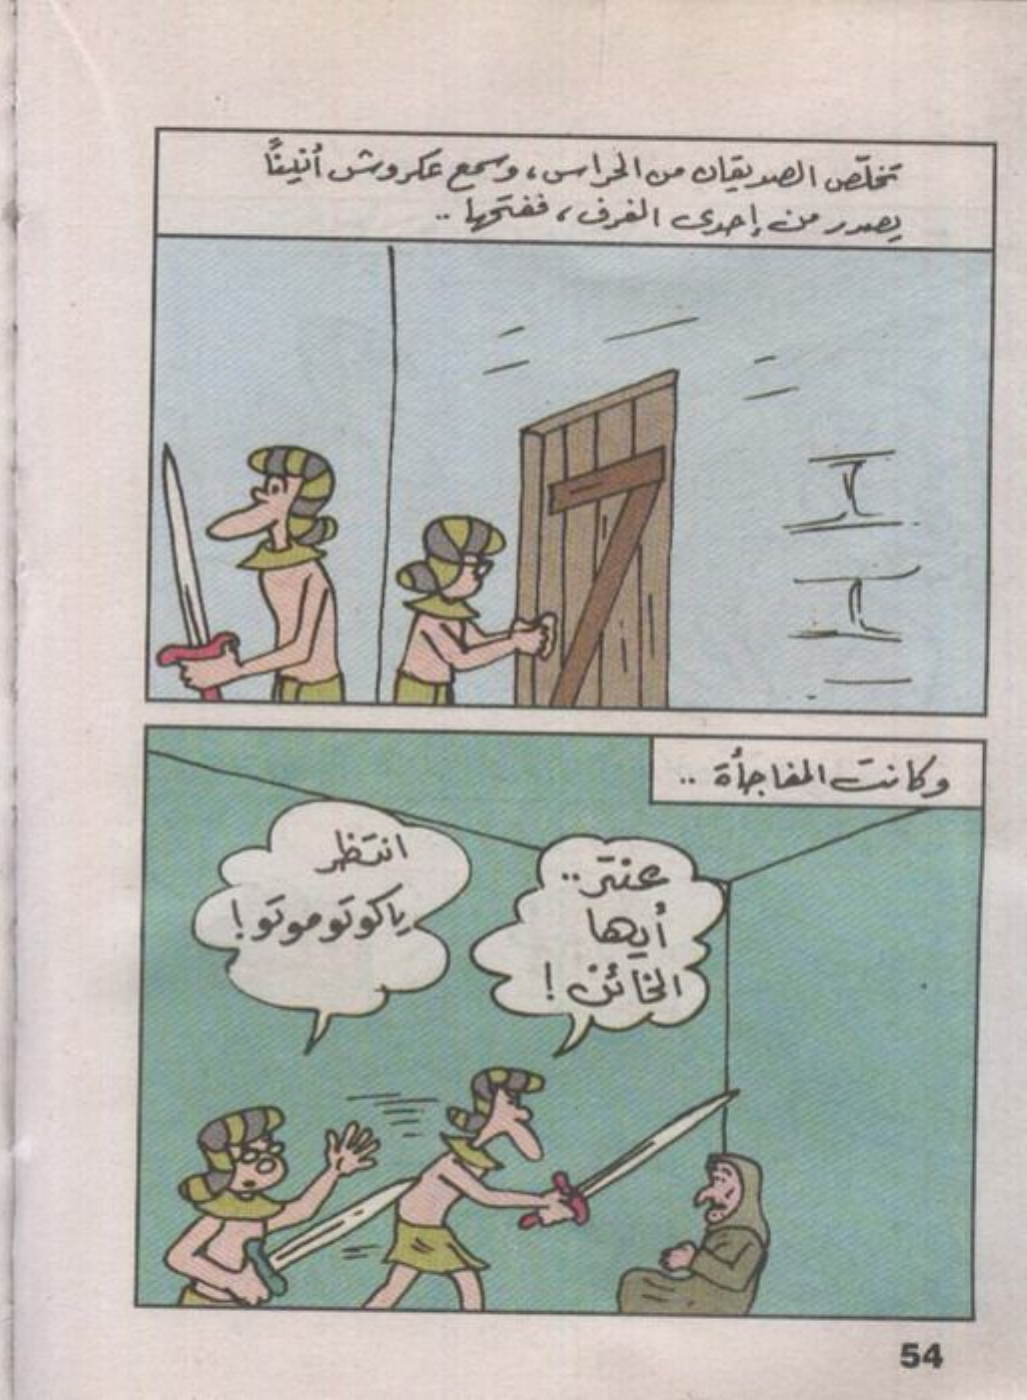 تخلّص الصديقان من الحراس، وسمع عكروش أنينًا
يصدر من إحدى الغرف، ففتحها ..
وكانت المفاجأة ..
عنتر..
أيها
الخائن !
انتظر
ياكوتوموتو !
54